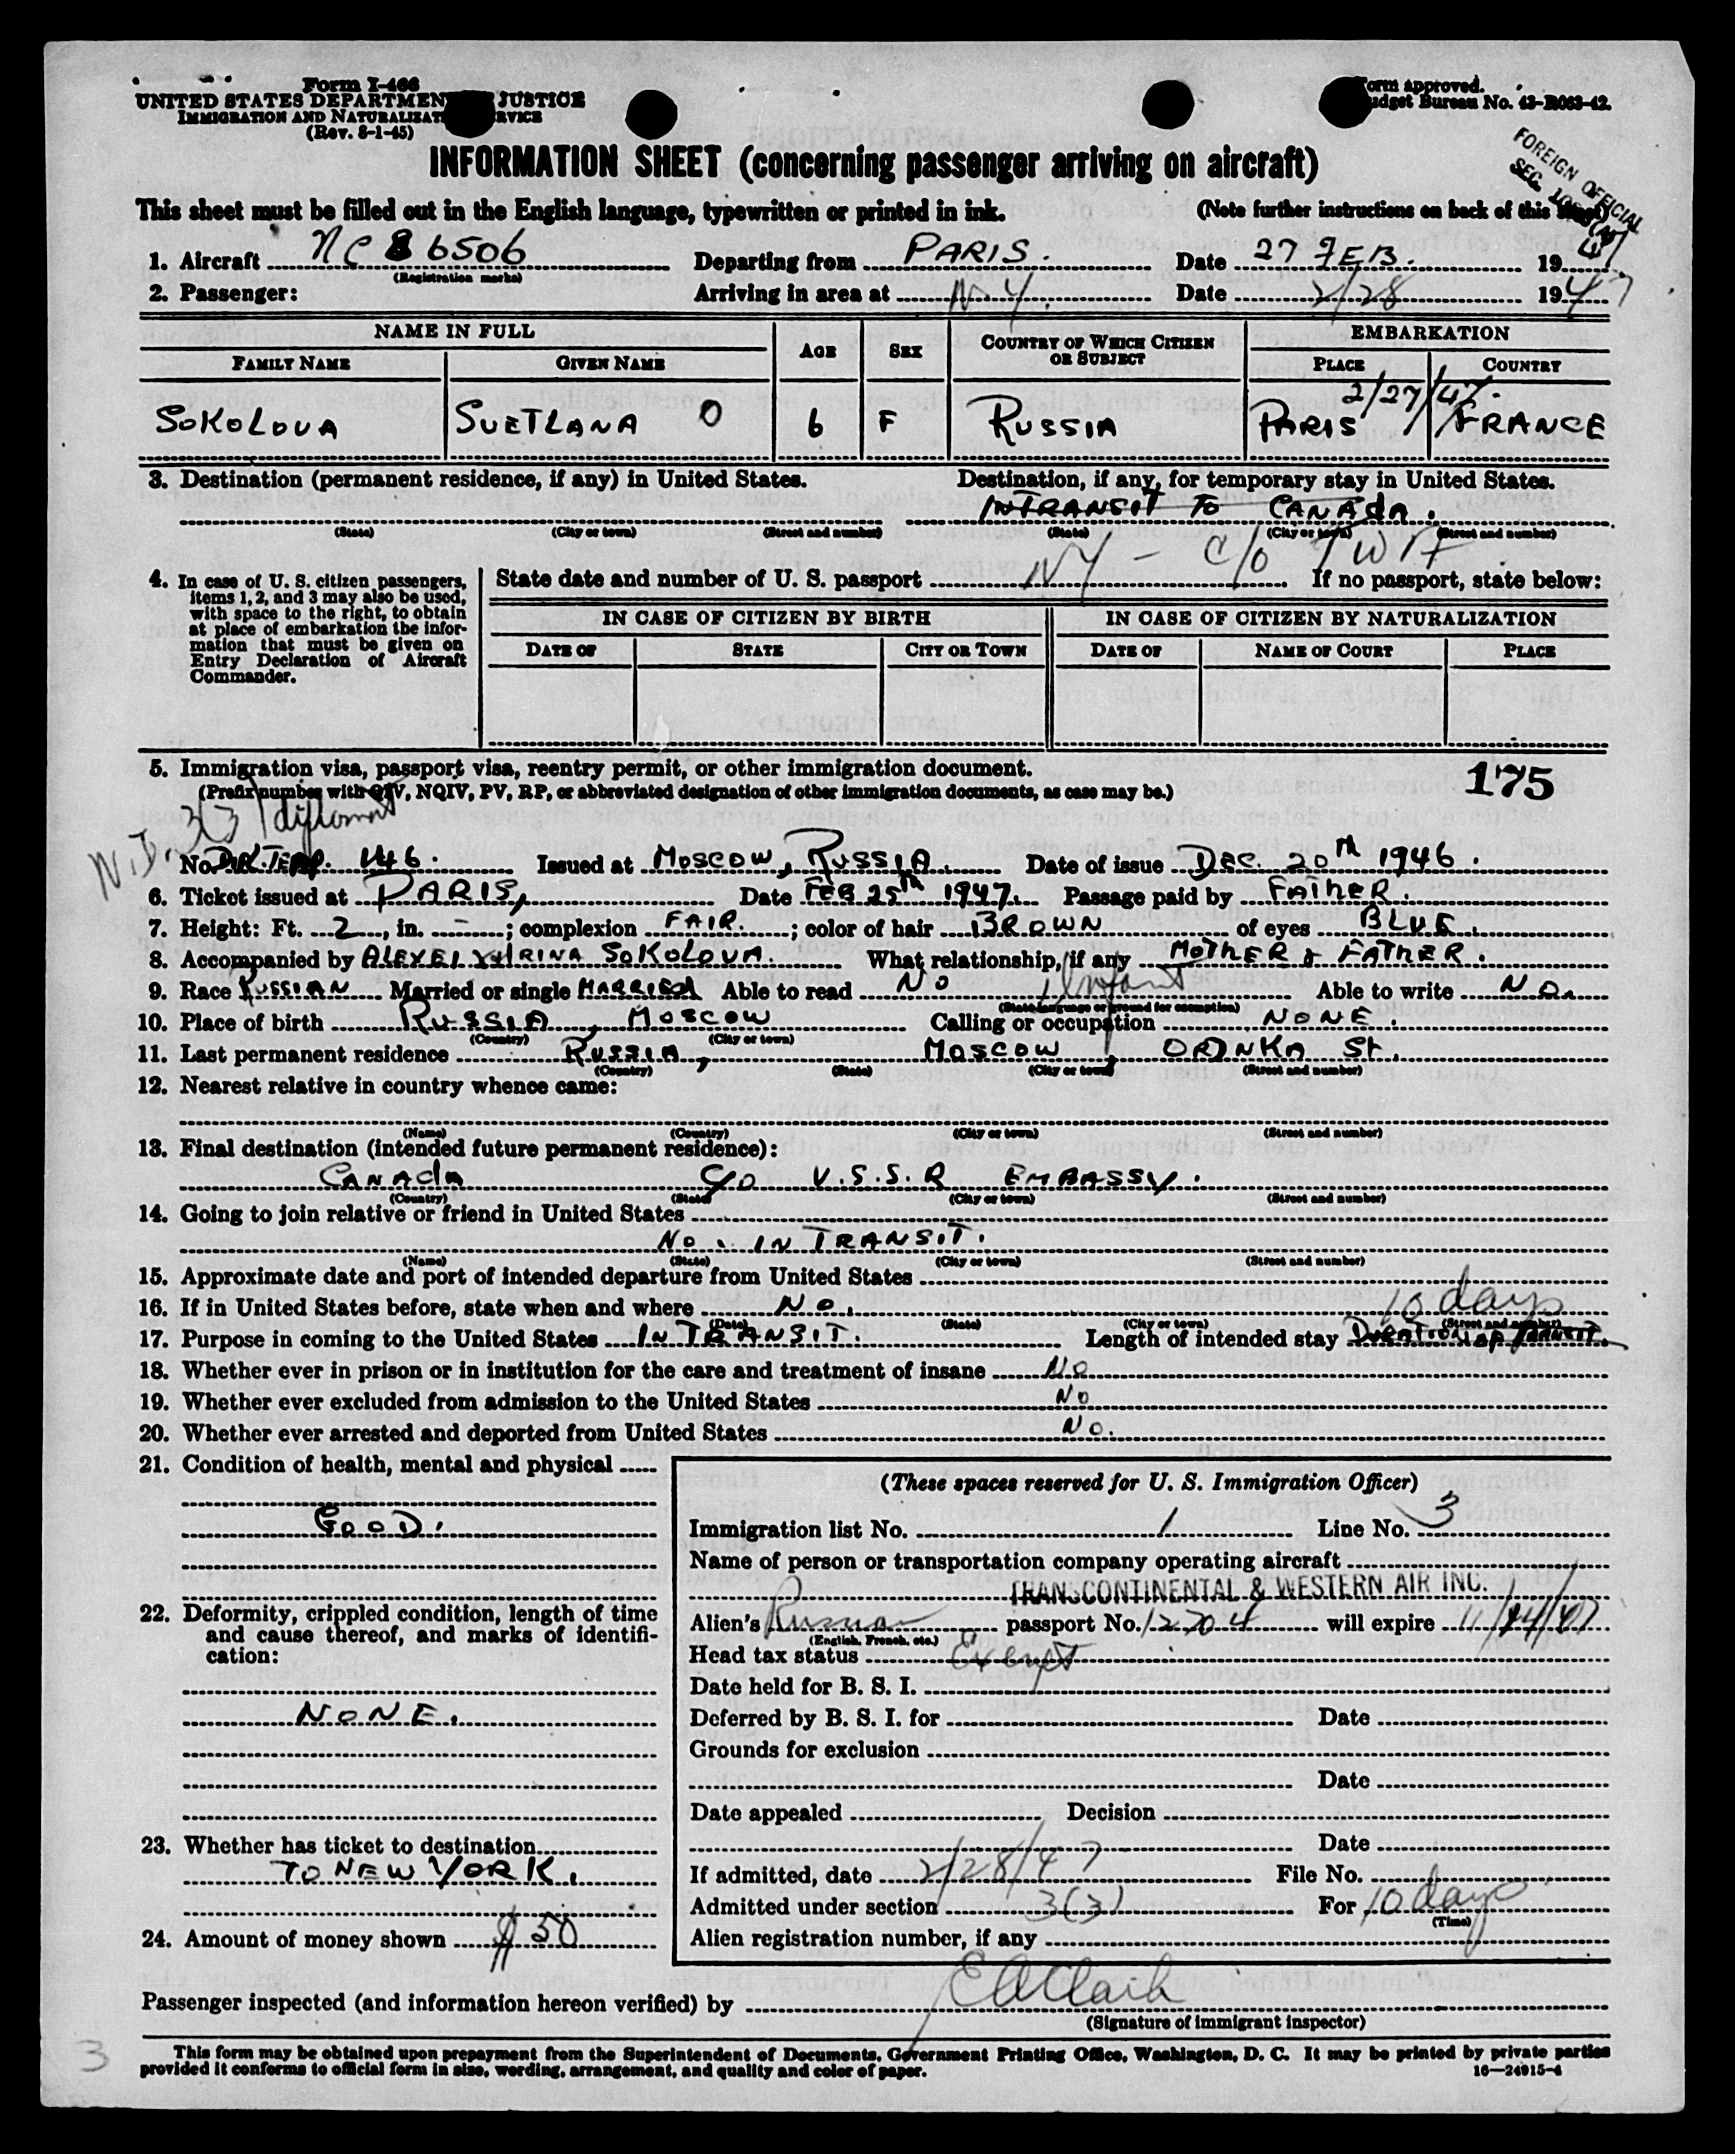 Form I-466
UNITED STATES DEPARTMENT JUSTICE
IMMIGRATION AND NATURALIZAT RVICE
(Rev. 8-1-45)
Form approved.
Budget Bureau No. 43-R063-42.
FOREIGN OFFICIAL
SEC.
INFORMATION SHEET (concerning passenger arriving on aircraft)
This sheet must be filled out in the English language, typewritten or printed in ink.
(Note further instructions on back of this sheet)
1. Aircraft NC 86506 Departing from PARIS. Date 27 FEB. 1947
(Registration marks)
2. Passenger: Arriving in area at N.Y. Date 2/28 1947
NAME IN FULL
AGE SEX COUNTRY OF WHICH CITIZEN OR SUBJECT EMBARKATION
FAMILY NAME GIVEN NAME PLACE COUNTRY
2/27/47.
SOKOLOVA SVETLANA O 6 F RUSSIA PARIS FRANCE
3. Destination (permanent residence, if any) in United States. Destination, if any, for temporary stay in United States.
INTRANSIT TO CANADA.
(State) (City or town) (Street and number) (State) (City or town) (Street and number)
NY - c/o TWA
4. In case of U. S. citizen passengers, items 1, 2, and 3 may also be used, with space to the right, to obtain at place of embarkation the information that must be given on Entry Declaration of Aircraft Commander.
State date and number of U. S. passport If no passport, state below:
IN CASE OF CITIZEN BY BIRTH IN CASE OF CITIZEN BY NATURALIZATION
DATE OF STATE CITY OR TOWN DATE OF NAME OF COURT PLACE
5. Immigration visa, passport visa, reentry permit, or other immigration document.
175
(Prefix number with QIV, NQIV, PV, RP, or abbreviated designation of other immigration documents, as case may be.)
3(3) diplomat
No. 146. Issued at MOSCOW, RUSSIA. Date of issue DEC. 20th 1946.
6. Ticket issued at PARIS, Date FEB 25th 1947. Passage paid by FATHER.
7. Height: Ft. 2, in. -; complexion FAIR.; color of hair BROWN of eyes BLUE.
8. Accompanied by ALEXEI IRINA SOKOLOVA. What relationship, if any MOTHER & FATHER.
9. Race RUSSIAN Married or single MARRIED Able to read NO Infant Able to write NO.
(State language or ground for exemption)
10. Place of birth RUSSIA, MOSCOW Calling or occupation NONE.
(Country) (City or town)
11. Last permanent residence RUSSIA, MOSCOW, St.
(Country) (State) (City or town) (Street and number)
12. Nearest relative in country whence came:
(Name) (Country) (City or town) (Street and number)
13. Final destination (intended future permanent residence):
CANADA C/O U.S.S.R EMBASSY.
(Country) (State) (City or town) (Street and number)
14. Going to join relative or friend in United States
NO. IN TRANSIT.
(Name) (State) (City or town) (Street and number)
15. Approximate date and port of intended departure from United States
16. If in United States before, state when and where NO. 10 days
(Date) (State) (City or town) (Street and number)
17. Purpose in coming to the United States IN TRANSIT. Length of intended stay DURATION OF TRANSIT.
18. Whether ever in prison or in institution for the care and treatment of insane NO
19. Whether ever excluded from admission to the United States NO
20. Whether ever arrested and deported from United States NO.
21. Condition of health, mental and physical
GOOD.
22. Deformity, crippled condition, length of time and cause thereof, and marks of identification:
NONE.
23. Whether has ticket to destination
TO NEW YORK.
24. Amount of money shown $50
(These spaces reserved for U. S. Immigration Officer)
Immigration list No. 1 Line No. 3
Name of person or transportation company operating aircraft
TRANSCONTINENTAL & WESTERN AIR INC.
Alien's Russian passport No. 12704 will expire 11/14/47
(English, French, etc.)
Head tax status Exempt
Date held for B. S. I.
Deferred by B. S. I. for Date
Grounds for exclusion
Date
Date appealed Decision
Date
If admitted, date 2/28/47 File No.
Admitted under section 3(3) For 10 days
(Time)
Alien registration number, if any
Passenger inspected (and information hereon verified) by E A Clark
(Signature of immigrant inspector)
3
This form may be obtained upon prepayment from the Superintendent of Documents, Government Printing Office, Washington, D. C. It may be printed by private parties
provided it conforms to official form in size, wording, arrangement, and quality and color of paper.
16—24915-4